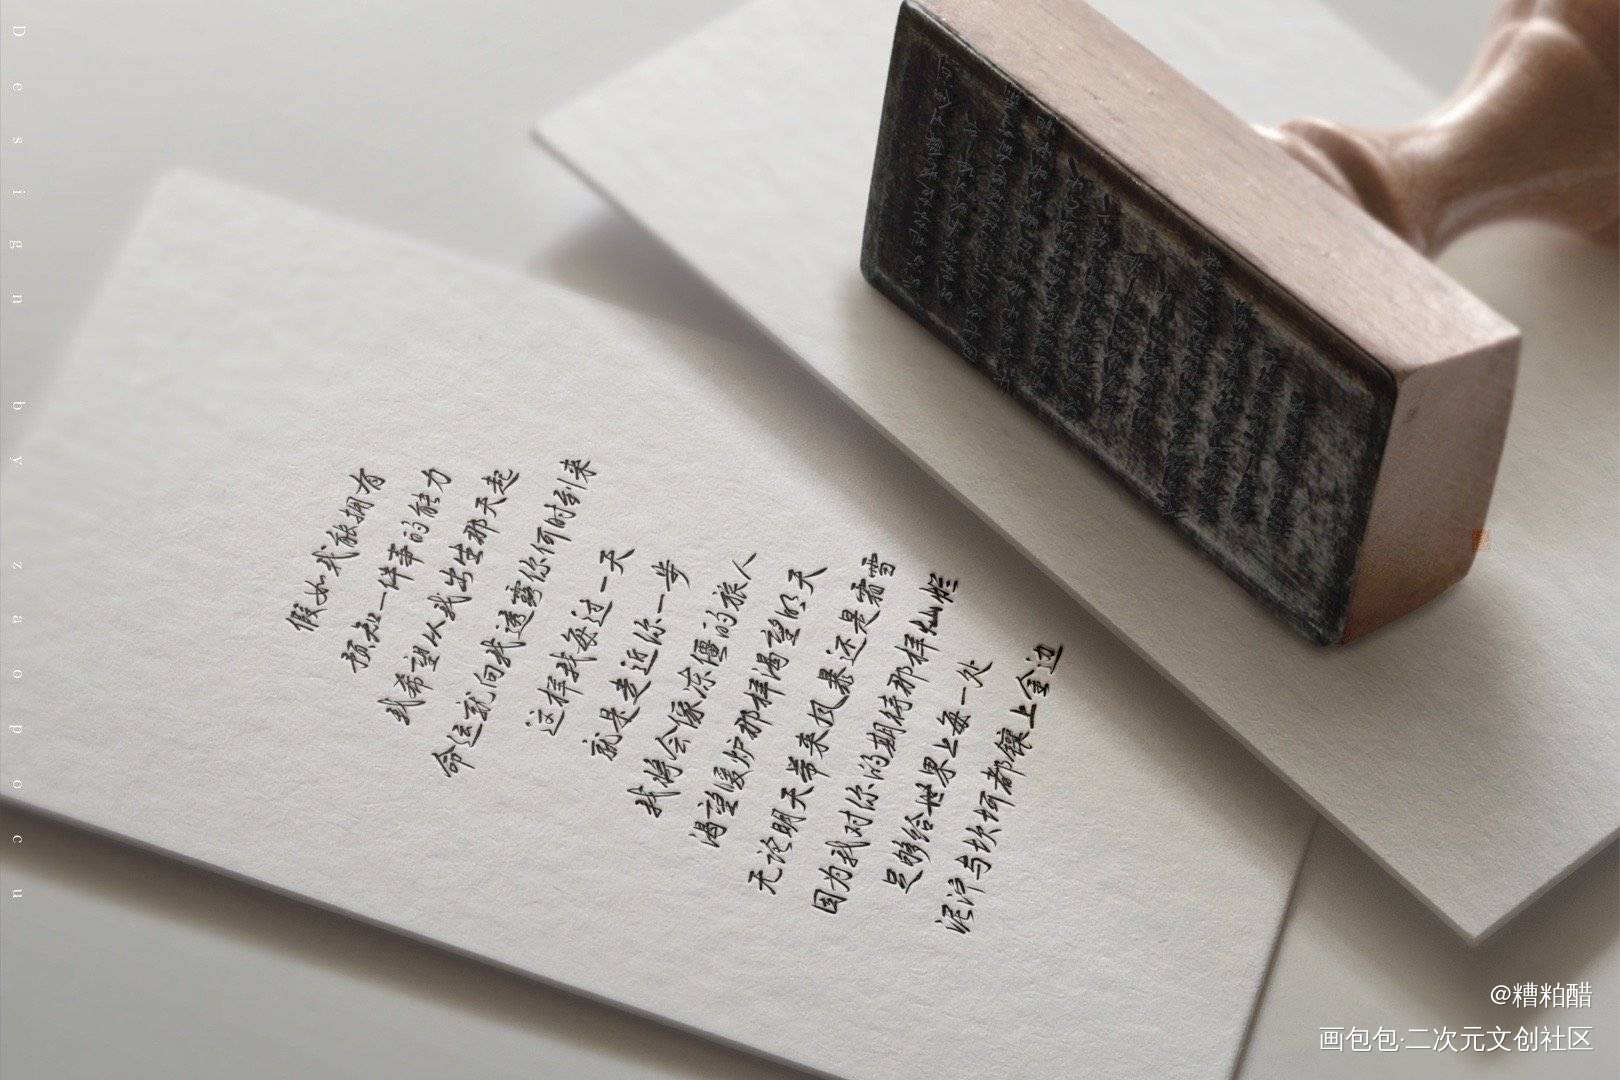 假如我能拥有
预知一件事的能力
我希望从我出生那天起
命运就向我透露你何时到来
这样我每过一天
就是走近你一步
我将会像冻僵的旅人
渴望暖炉那样渴望明天
无论明天带来风暴还是霜雪
因为我对你的期待那样灿烂
足够给世界上每一处
泥泞与坎坷都镶上金边
Design by zaopocu
@糟粕醋
画包包·二次元文创社区